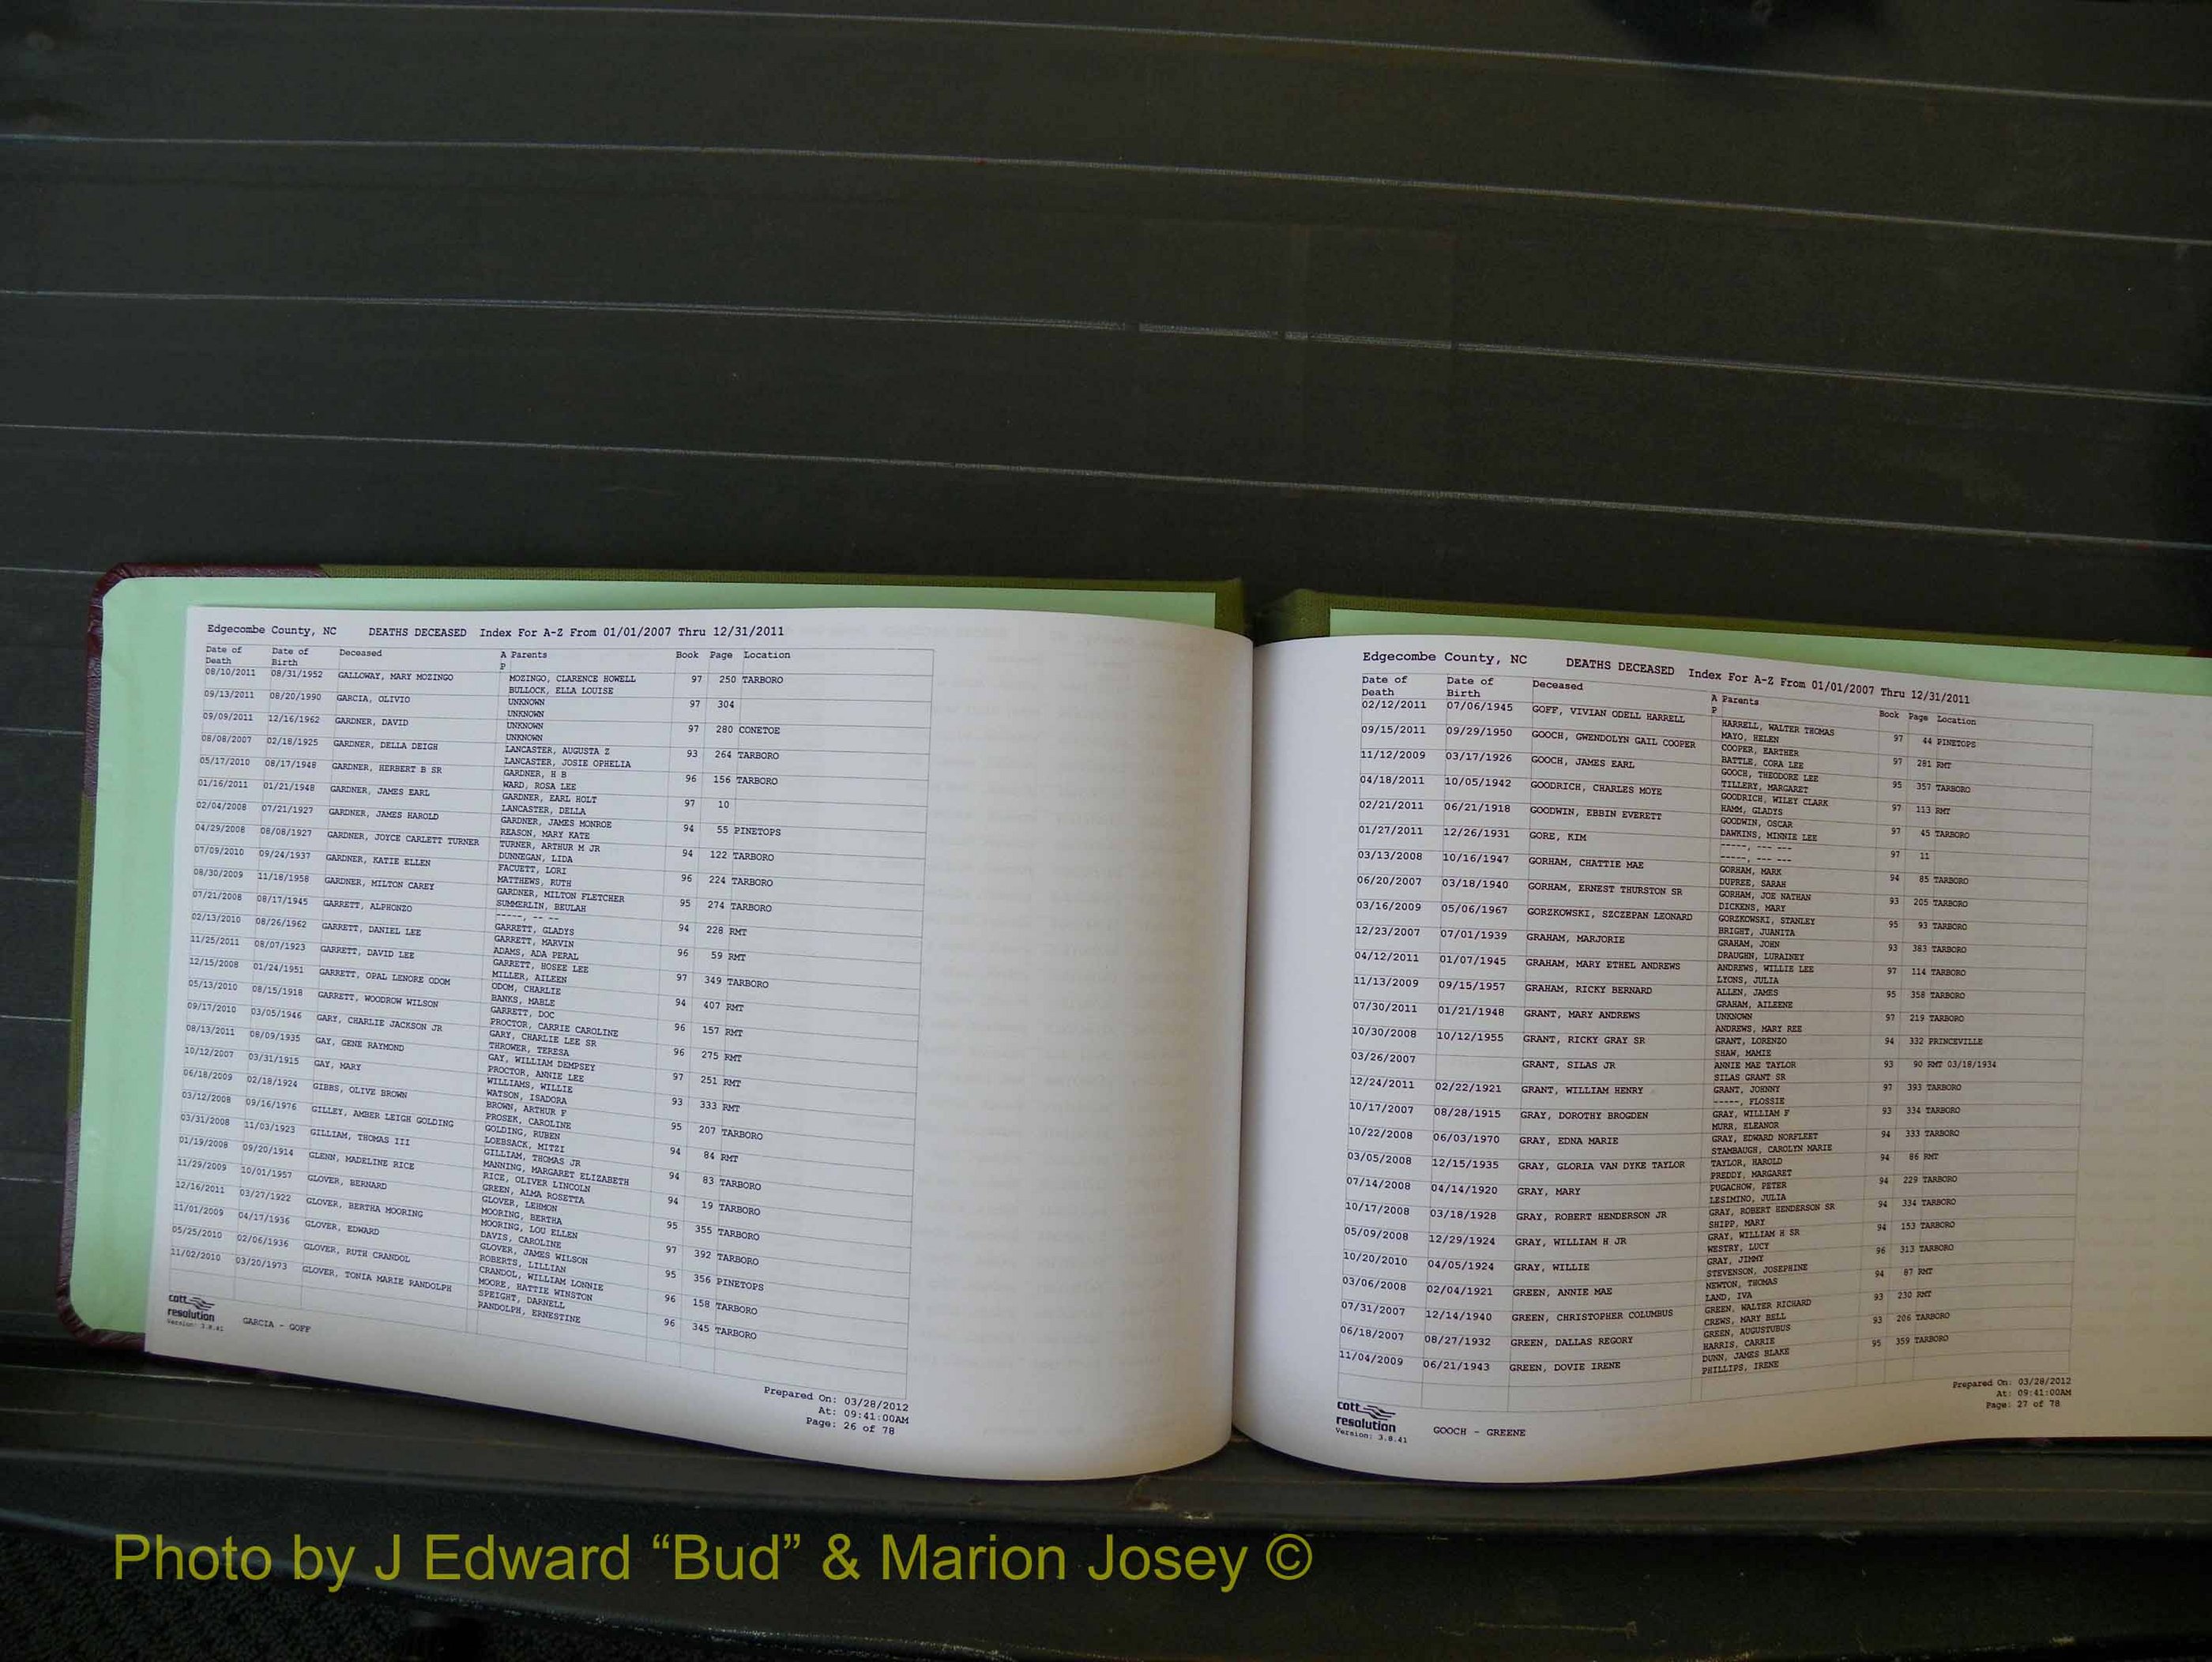 Edgecombe County, NC DEATHS DECEASED Index For A-Z From 01/01/2007 Thru 12/31/2011
Date of Death Date of Birth Deceased A P Parents Book Page Location
08/10/2011 08/31/1952 GALLOWAY, MARY MOZINGO MOZINGO, CLARENCE HOWELL 97 250 TARBORO
BULLOCK, ELLA LOUISE
09/13/2011 08/20/1990 GARCIA, OLIVIO UNKNOWN 97 304
UNKNOWN
09/09/2011 12/16/1962 GARDNER, DAVID UNKNOWN 97 280 CONETOE
UNKNOWN
08/08/2007 02/18/1925 GARDNER, DELLA DEIGH LANCASTER, AUGUSTA Z 93 264 TARBORO
LANCASTER, JOSIE OPHELIA
05/17/2010 08/17/1948 GARDNER, HERBERT B SR GARDNER, H B 96 156 TARBORO
WARD, ROSA LEE
01/16/2011 01/21/1948 GARDNER, JAMES EARL GARDNER, EARL HOLT 97 10
LANCASTER, DELLA
02/04/2008 07/21/1927 GARDNER, JAMES HAROLD GARDNER, JAMES MONROE 94 55 PINETOPS
REASON, MARY KATE
04/29/2008 08/08/1927 GARDNER, JOYCE CARLETT TURNER TURNER, ARTHUR M JR 94 122 TARBORO
DUNNEGAN, LIDA
07/09/2010 09/24/1937 GARDNER, KATIE ELLEN FACUETT, LORI 96 224 TARBORO
MATTHEWS, RUTH
08/30/2009 11/18/1958 GARDNER, MILTON CAREY GARDNER, MILTON FLETCHER 95 274 TARBORO
SUMMERLIN, BEULAH
07/21/2008 08/17/1945 GARRETT, ALPHONZO -----, -- -- 94 228 RMT
GARRETT, GLADYS
02/13/2010 08/26/1962 GARRETT, DANIEL LEE GARRETT, MARVIN 96 59 RMT
ADAMS, ADA PERAL
11/25/2011 08/07/1923 GARRETT, DAVID LEE GARRETT, HOSEE LEE 97 349 TARBORO
MILLER, AILEEN
12/15/2008 01/24/1951 GARRETT, OPAL LENORE ODOM ODOM, CHARLIE 94 407 RMT
BANKS, MABLE
05/13/2010 08/15/1918 GARRETT, WOODROW WILSON GARRETT, DOC 96 157 RMT
PROCTOR, CARRIE CAROLINE
09/17/2010 03/05/1946 GARY, CHARLIE JACKSON JR GARY, CHARLIE LEE SR 96 275 RMT
THROWER, TERESA
08/13/2011 08/09/1935 GAY, GENE RAYMOND GAY, WILLIAM DEMPSEY 97 251 RMT
PROCTOR, ANNIE LEE
10/12/2007 03/31/1915 GAY, MARY WILLIAMS, WILLIE 93 333 RMT
WATSON, ISADORA
06/18/2009 02/18/1924 GIBBS, OLIVE BROWN BROWN, ARTHUR F 95 207 TARBORO
PROSEK, CAROLINE
03/12/2008 09/16/1976 GILLEY, AMBER LEIGH GOLDING GOLDING, RUBEN 94 84 RMT
LOEBSACK, MITZI
03/31/2008 11/03/1923 GILLIAM, THOMAS III GILLIAM, THOMAS JR 94 83 TARBORO
MANNING, MARGARET ELIZABETH
01/19/2008 09/20/1914 GLENN, MADELINE RICE RICE, OLIVER LINCOLN 94 19 TARBORO
GREEN, ALMA ROSETTA
11/29/2009 10/01/1957 GLOVER, BERNARD GLOVER, LEHMON 95 355 TARBORO
MOORING, BERTHA
12/16/2011 03/27/1922 GLOVER, BERTHA MOORING MOORING, LOU ELLEN 97 392 TARBORO
DAVIS, CAROLINE
11/01/2009 04/17/1936 GLOVER, EDWARD GLOVER, JAMES WILSON 95 356 PINETOPS
ROBERTS, LILLIAN
05/25/2010 02/06/1936 GLOVER, RUTH CRANDOL CRANDOL, WILLIAM LONNIE 96 158 TARBORO
MOORE, HATTIE WINSTON
11/02/2010 03/20/1973 GLOVER, TONIA MARIE RANDOLPH SPEIGHT, DARNELL 96 345 TARBORO
RANDOLPH, ERNESTINE
cott
resolution
Version: 3.8.41
GARCIA - GOFF
Prepared On: 03/28/2012
At: 09:41:00AM
Page: 26 of 78
Edgecombe County, NC DEATHS DECEASED Index For A-Z From 01/01/2007 Thru 12/31/2011
Date of Death Date of Birth Deceased A P Parents Book Page Location
02/12/2011 07/06/1945 GOFF, VIVIAN ODELL HARRELL HARRELL, WALTER THOMAS 97 44 PINETOPS
MAYO, HELEN
09/15/2011 09/29/1950 GOOCH, GWENDOLYN GAIL COOPER COOPER, EARTHER 97 281 RMT
BATTLE, CORA LEE
11/12/2009 03/17/1926 GOOCH, JAMES EARL GOOCH, THEODORE LEE 95 357 TARBORO
TILLERY, MARGARET
04/18/2011 10/05/1942 GOODRICH, CHARLES MOYE GOODRICH, WILEY CLARK 97 113 RMT
HAMM, GLADYS
02/21/2011 06/21/1918 GOODWIN, EBBIN EVERETT GOODWIN, OSCAR 97 45 TARBORO
DAWKINS, MINNIE LEE
01/27/2011 12/26/1931 GORE, KIM -----, --- --- 97 11
-----, --- ---
03/13/2008 10/16/1947 GORHAM, CHATTIE MAE GORHAM, MARK 94 85 TARBORO
DUPREE, SARAH
06/20/2007 03/18/1940 GORHAM, ERNEST THURSTON SR GORHAM, JOE NATHAN 93 205 TARBORO
DICKENS, MARY
03/16/2009 05/06/1967 GORZKOWSKI, SZCZEPAN LEONARD GORZKOWSKI, STANLEY 95 93 TARBORO
BRIGHT, JUANITA
12/23/2007 07/01/1939 GRAHAM, MARJORIE GRAHAM, JOHN 93 383 TARBORO
DRAUGHN, LURAINEY
04/12/2011 01/07/1945 GRAHAM, MARY ETHEL ANDREWS ANDREWS, WILLIE LEE 97 114 TARBORO
LYONS, JULIA
11/13/2009 09/15/1957 GRAHAM, RICKY BERNARD ALLEN, JAMES 95 358 TARBORO
GRAHAM, AILEENE
07/30/2011 01/21/1948 GRANT, MARY ANDREWS UNKNOWN 97 219 TARBORO
ANDREWS, MARY REE
10/30/2008 10/12/1955 GRANT, RICKY GRAY SR GRANT, LORENZO 94 332 PRINCEVILLE
SHAW, MAMIE
03/26/2007 GRANT, SILAS JR ANNIE MAE TAYLOR 93 90 RMT 03/18/1934
SILAS GRANT SR
12/24/2011 02/22/1921 GRANT, WILLIAM HENRY GRANT, JOHNNY 97 393 TARBORO
-----, FLOSSIE
10/17/2007 08/28/1915 GRAY, DOROTHY BROGDEN GRAY, WILLIAM F 93 334 TARBORO
MURR, ELEANOR
10/22/2008 06/03/1970 GRAY, EDNA MARIE GRAY, EDWARD NORFLEET 94 333 TARBORO
STAMBAUGH, CAROLYN MARIE
03/05/2008 12/15/1935 GRAY, GLORIA VAN DYKE TAYLOR TAYLOR, HAROLD 94 86 RMT
PREDDY, MARGARET
07/14/2008 04/14/1920 GRAY, MARY PUGACHOW, PETER 94 229 TARBORO
LESIMINO, JULIA
10/17/2008 03/18/1928 GRAY, ROBERT HENDERSON JR GRAY, ROBERT HENDERSON SR 94 334 TARBORO
SHIPP, MARY
05/09/2008 12/29/1924 GRAY, WILLIAM H JR GRAY, WILLIAM H SR 94 153 TARBORO
WESTRY, LUCY
10/20/2010 04/05/1924 GRAY, WILLIE GRAY, JIMMY 96 313 TARBORO
STEVENSON, JOSEPHINE
03/06/2008 02/04/1921 GREEN, ANNIE MAE NEWTON, THOMAS 94 87 RMT
LAND, IVA
07/31/2007 12/14/1940 GREEN, CHRISTOPHER COLUMBUS GREEN, WALTER RICHARD 93 230 RMT
CREWS, MARY BELL
06/18/2007 08/27/1932 GREEN, DALLAS REGORY GREEN, AUGUSTUBUS 93 206 TARBORO
HARRIS, CARRIE
11/04/2009 06/21/1943 GREEN, DOVIE IRENE DUNN, JAMES BLAKE 95 359 TARBORO
PHILLIPS, IRENE
cott
resolution
Version: 3.8.41
GOOCH - GREENE
Prepared On: 03/28/2012
At: 09:41:00AM
Page: 27 of 78
Photo by J Edward “Bud” & Marion Josey ©